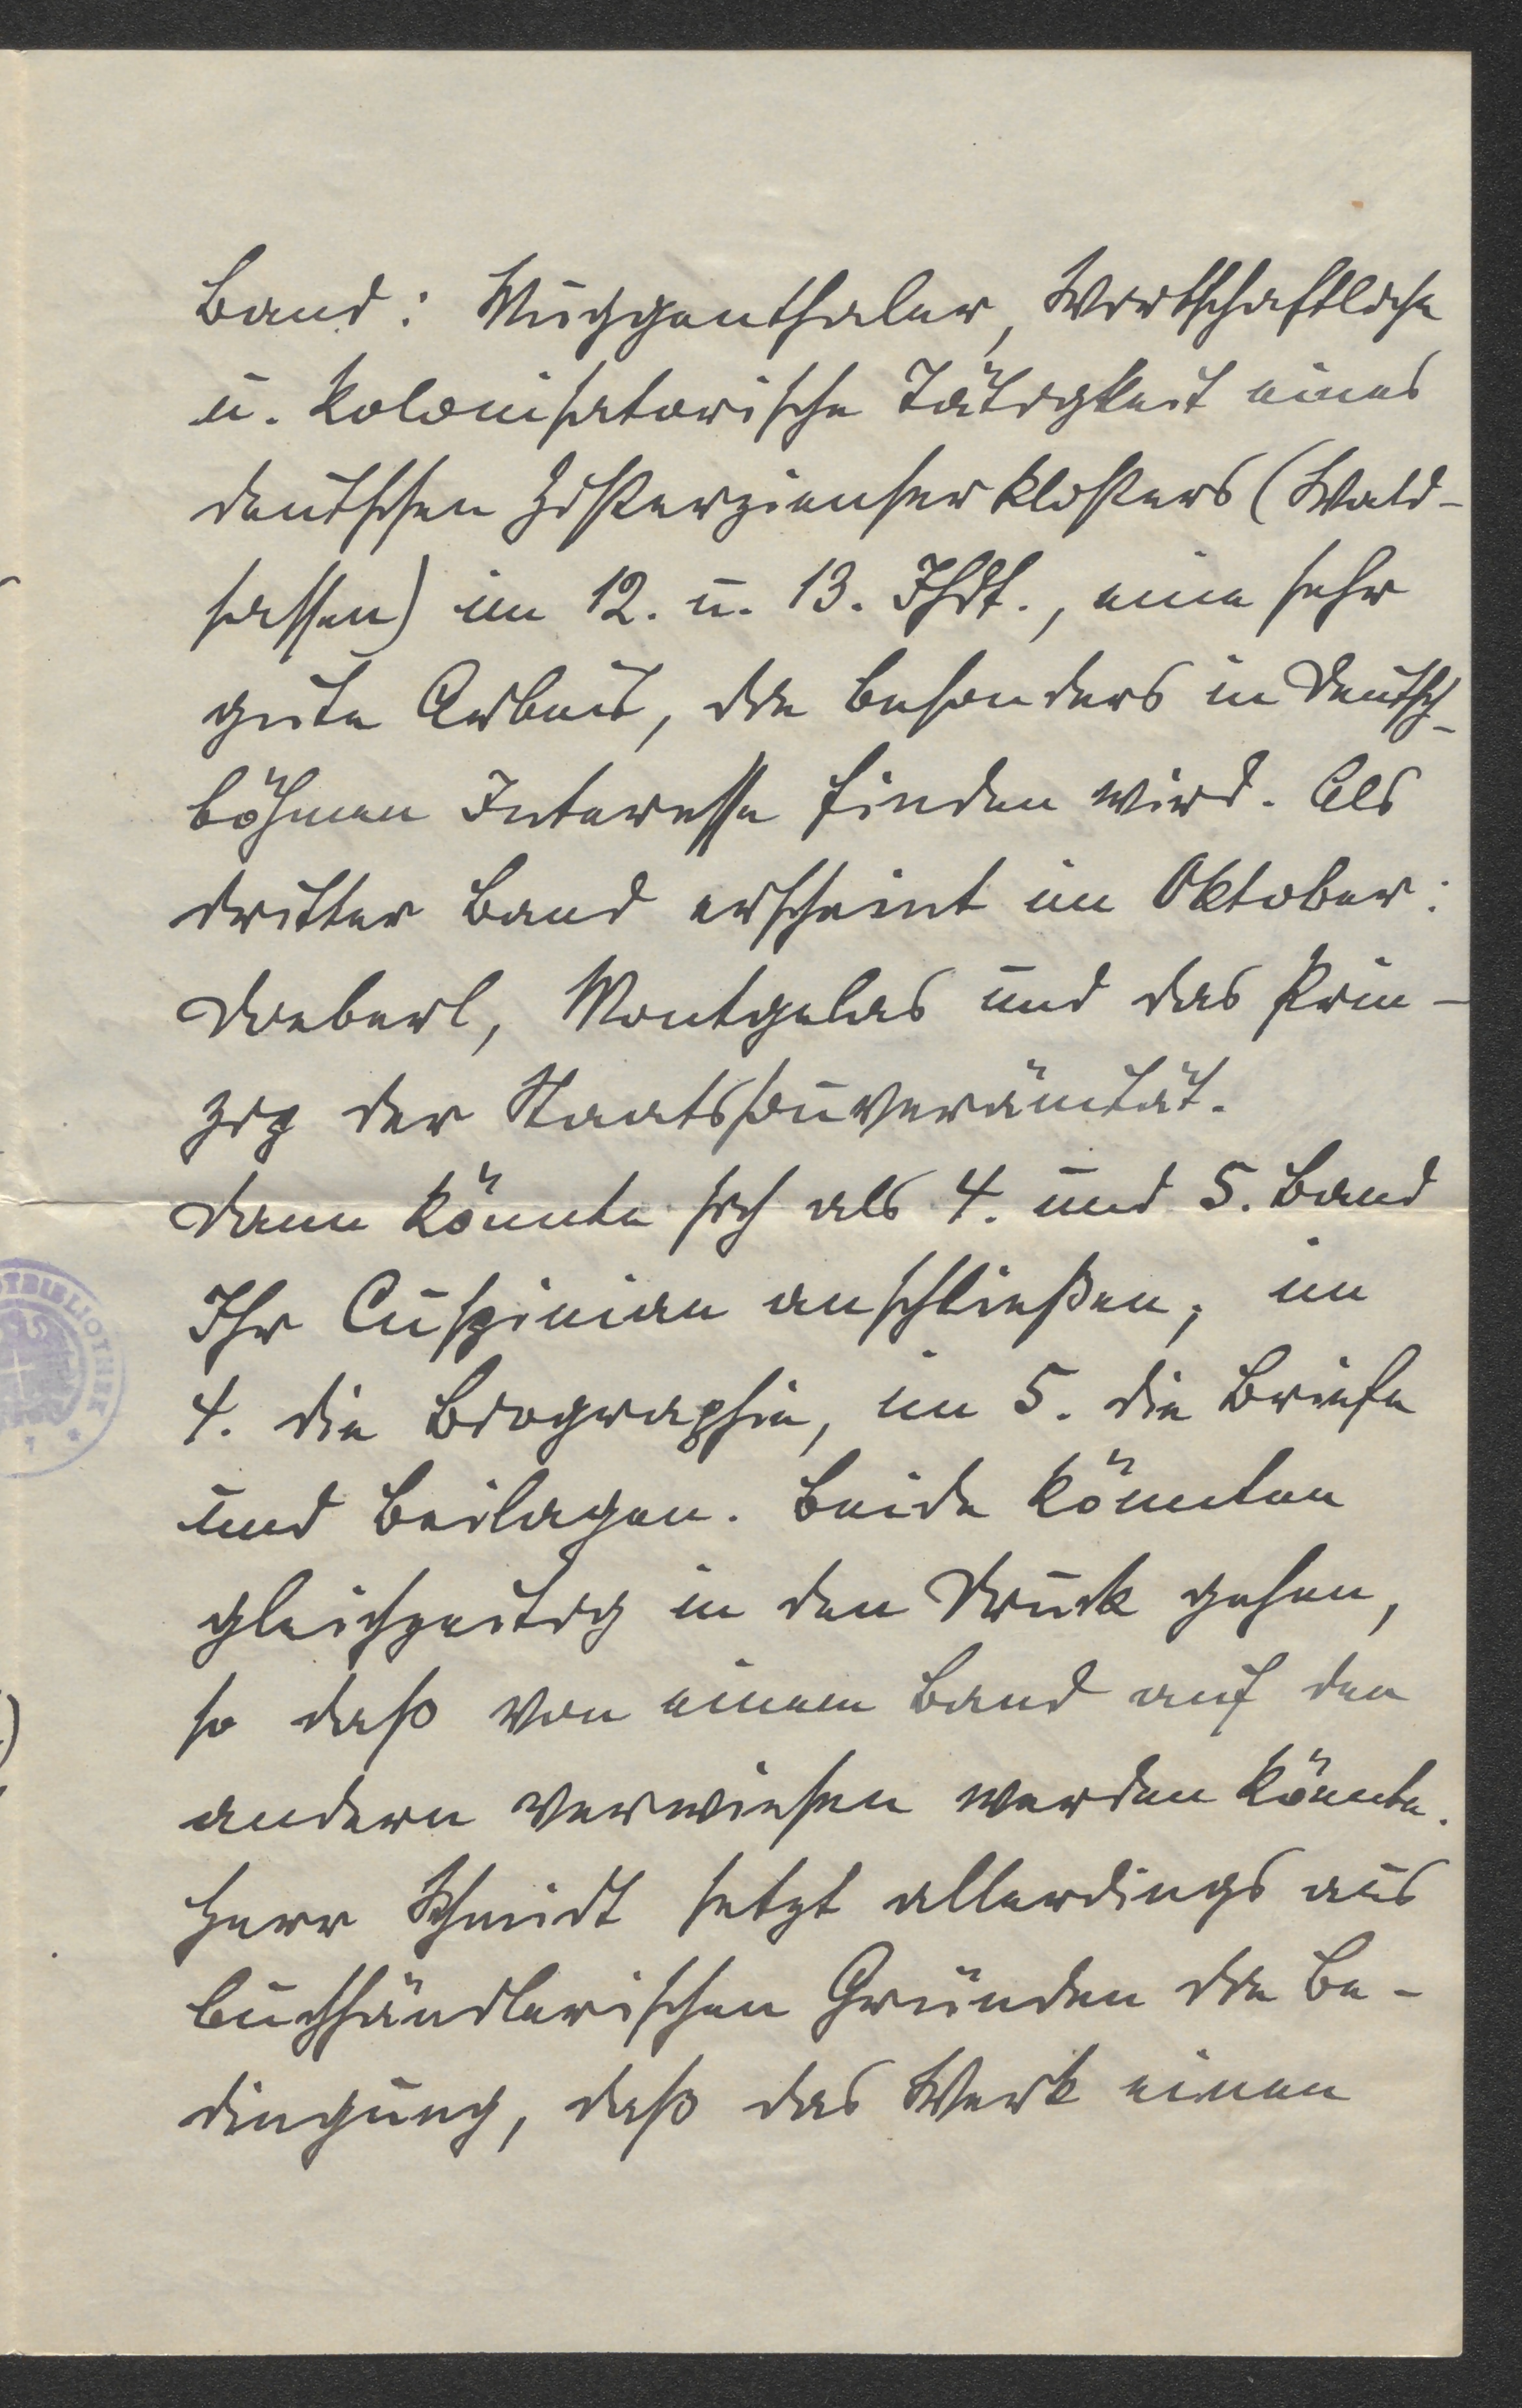 Band: Muggenthaler, Wirtschaftliche
u. kolonisatorische Tätigkeit eines
deutschen Zisterzienserklosters (Wald-
sassen) im 12. u. 13. Jhdt., eine sehr
gute Arbeit, die besonders in Deutsch-
böhmen Interesse finden wird. Als
dritter Band erscheint im Oktober:
Doeberl, Montgelas und das Prin-
zip der Staatssouveränität.
Dann könnte sich als 4. und 5. Band
Ihr Cuspinian anschließen, im
4. die Biographie, im 5. die Briefe
und Beilagen. Beide könnten
gleichzeitig in den Druck gehen,
so daß von einem Band auf den
andern verwiesen werden könnte.
Herr Schmidt setzt allerdings aus
buchhändlerischen Gründen die Be-
dingung, daß das Werk einen